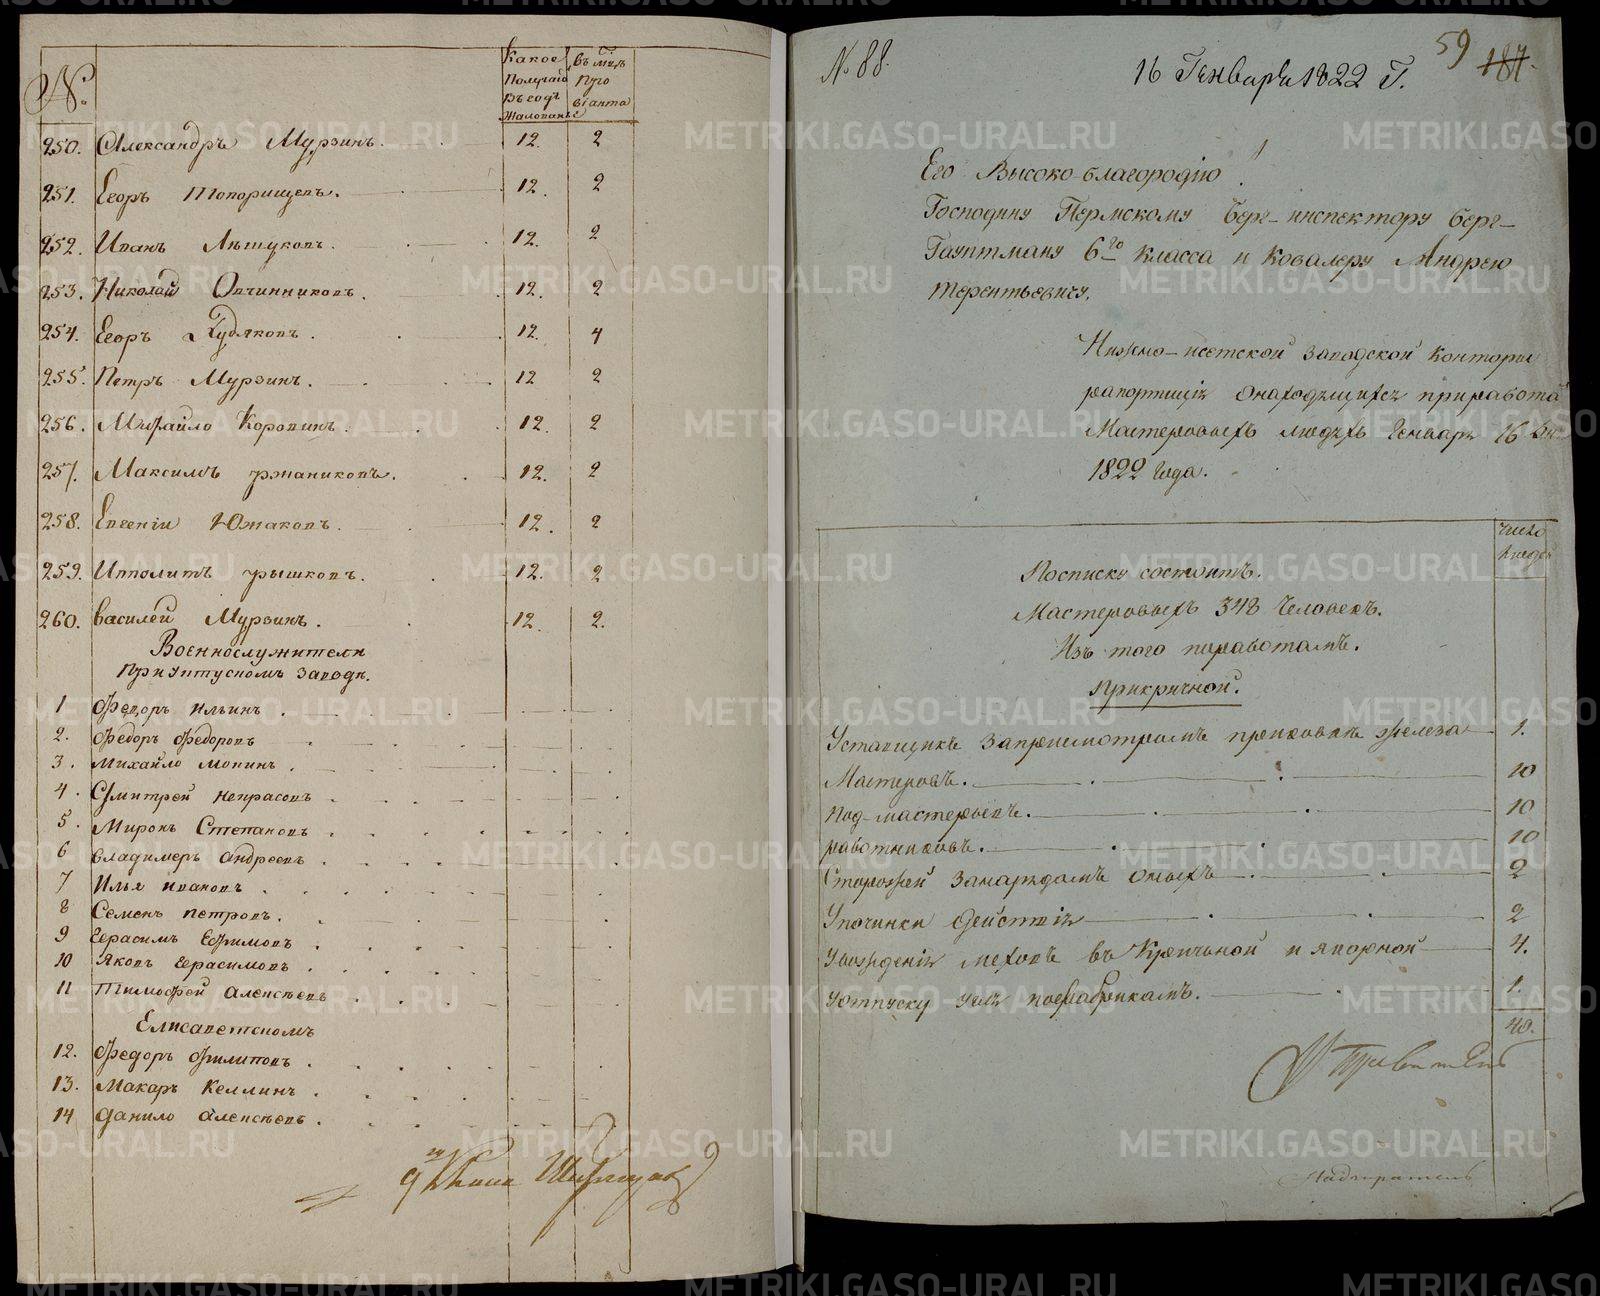 №.
Какое въ мць
Получаютъ Про
въ годъ віанта
Жалованье
250. Александръ Мурзинъ. 12. 2
251. Егоръ Топорищевъ. 12. 2
252. Иванъ Лѣшуковъ. 12. 2
253. Николай Овчинниковъ. 12. 2
254. Егоръ Худяковъ. 12. 4
255. Петръ Мурзинъ. 12 2
256. Михайло Коровинъ. 12. 2
257. Максимъ ржаниковъ. 12. 2
258. Евгеніи Южаковъ. 12. 2
259. Ипполитъ рышковъ. 12. 2
260. василей Мурзинъ. 12. 2.
Военнослужители
При Уктускомъ заводѣ.
1 Федоръ ильинъ.
2. Федоръ Федоровъ
3. Михайло Мокинъ.
4. Дмитрей Некрасовъ
5. Миронъ Степановъ
6 владимеръ андреевъ
7 Илья ивановъ
8 Семенъ петровъ.
9 Герасимъ Ефимовъ
10 Яковъ Герасимовъ
11 Тимофей алексѣевъ
Елисаветскомъ
12. Федоръ Филиповъ
13. Макаръ Келлинъ
14 данило алексѣевъ.
№ 88. 59 187.
16 Генваря 1822 Г.
Его Высоко-благородію
Господину Пермскому Берг-инспектору берг-
Гауптману 6го класса и Ковалеру Андрею
Терентьевичу.
Нижно-исетской заводской Конторы
рапортиція онаходящихся приработа
Мастеровыхъ людяхъ Генваря 16 дня
1822 года.
Число
людей
Посписку состоитъ.
Мастеровыхъ 348 Человекъ.
Изъ того поработамъ.
Прикричной.
Уставщикъ Заприсмотромъ проковки железа 1.
Мастеровъ. 10
Под-мастерьевъ. 10
работниковъ. 10
Сторожей Занарядомъ оныхъ 2
Упочинки действія 2
Увожденія меховъ въ Кричьной и якорной 4.
Уотпуску угля пофабрикамъ. 1.
40.
Надзиратель
METRIKI.GASO-URAL.RU